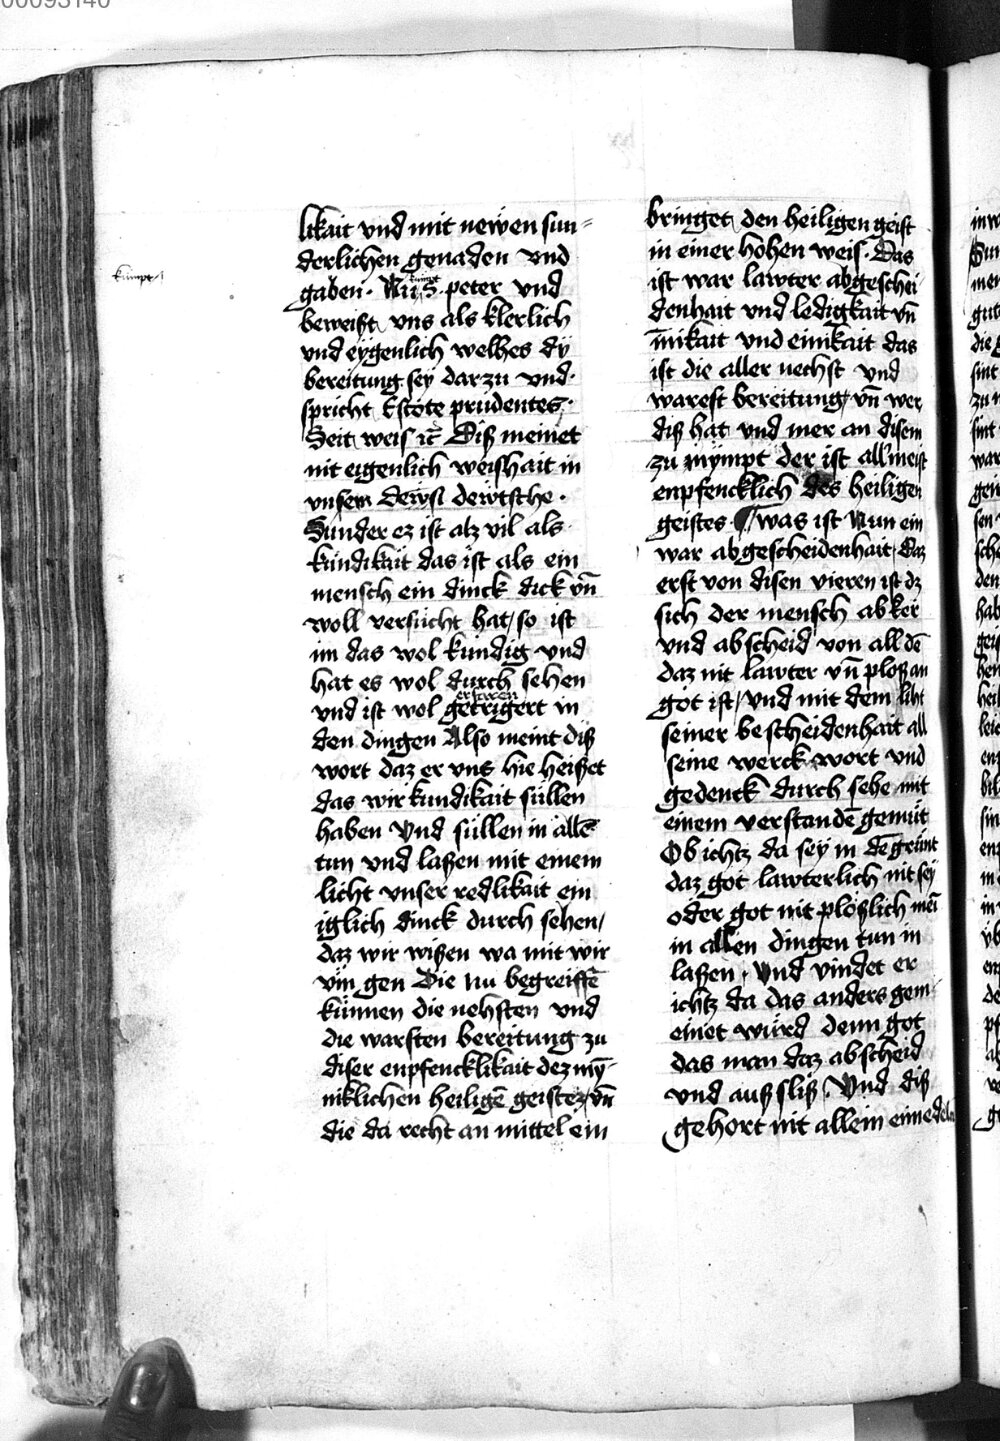 00093140
kumpt
likait vnd mit newen sun=
derlichen genaden vnd
gaben · Nu kumpt S · peter vnd
beweißt vns als klerlich
vnd eygenlich welhes dy
bereitung sey dar zu vnd ·
spricht Estote prudentes ·
Seit weis ꝛc̄ Diß meinet
nit eigenlich weishait in
vnserm dewtsche ·
Sunder ez ist alz vil als
kundikait das ist als ein
mensch ein dinck dick vn̄
woll versucht hat / so ist
im das wol kundig vnd
hat es wol durch sehen
erfaren
vnd ist wol getrigert in
den dingen Also meint diß
wort daz er vns hie heißet
das wir kundikait süllen
haben Vnd süllen in allē
tun vnd laßen mit einem
licht vnser redlikait ein
iglich dinck durch sehen /
daz wir wißen wa mit wir
vm̄ gen Die nu begreiffē
künnen die nehsten vnd
die warsten bereitung zu
diser enpfencklikait dez my̅=
niklichen heiligē geistez vn̄
die da recht an mittel ein
bringet den heiligen geist
in einer hohen weis · Das
ist war lawter abgeschei
denhait vnd ledigkait vn̄
īnikait vnd einikait das
ist die aller nechst vnd
warest bereitung / vn̄ wer
diß hat vnd mer an disem
zu nympt der ist all meist
enpfencklich des heiligen
geistes · ¶ was ist Nun ein
war abgescheidenhait / Daz
erst von disen vieren ist dz
sich der mensch ab ker
vnd abscheid von all dē
daz nit lawter vn̄ ploß an
got ist / vnd mit dem liht
seiner bescheidenhait all
seine werck wort vnd
gedenck durch sehe mit
einem verstandē gemüt
Ob ichtz da sey in dē grunt
daz got lawterlich nit sey
oder got nit ploßlich mei
in allen dingen tun in
laßen / Vnd vindet er
ichtz da das anders gem=
einet würd denn got
das man daz abscheid
vnd auß sliß / Vnd diß
gehort nit allein einē edeln